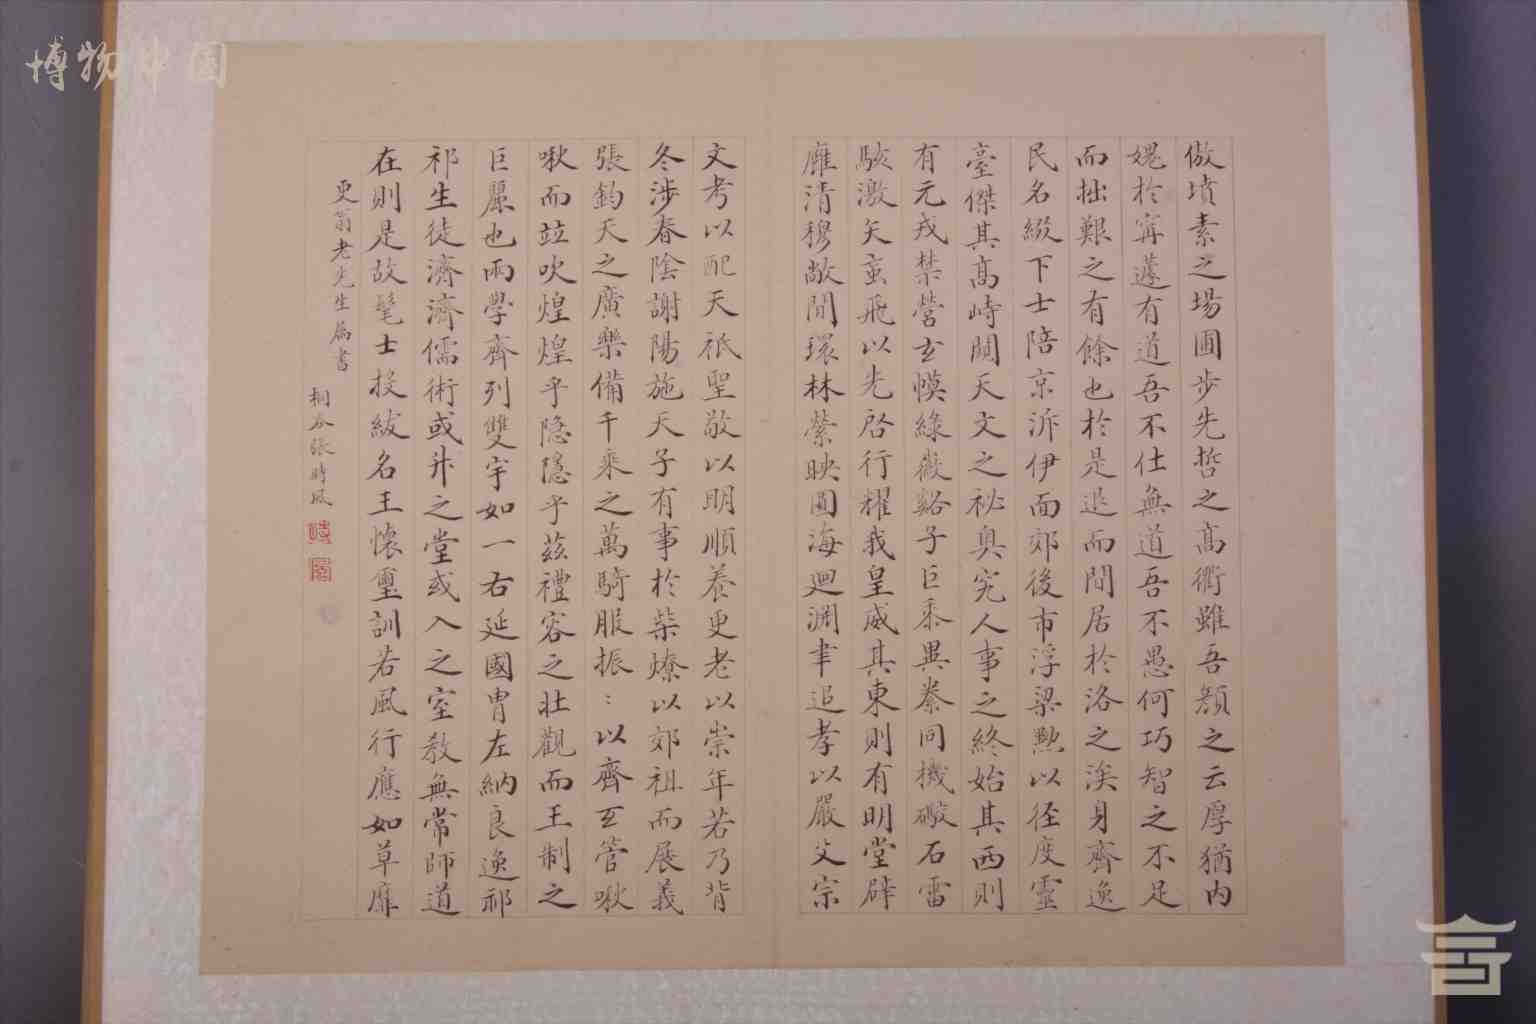 博物中国
傲墳素之場圃步先哲之高衢雖吾顏之云厚猶內
媿於甯蘧有道吾不仕無道吾不愚何巧智之不足
而拙艱之有餘也於是退而閒居於洛之涘身齊逸
民名綴下士陪京泝伊面郊後市浮梁黝以徑度靈
臺傑其高峙闚天文之祕奧究人事之終始其西則
有元戎禁營玄幙綠徽谿子巨黍異絭同機礮石雷
駭激矢虻飛以先啓行耀我皇威其東則有明堂辟
廱清穆敞閒環林縈映圓海迴淵聿追孝以嚴父宗
文考以配天祇聖敬以明順養更老以崇年若乃背
冬涉春陰謝陽施天子有事於柴燎以郊祖而展義
張鈞天之廣樂備千乘之萬騎服振:以齊玄管啾
啾而竝吹煌煌乎隱隱乎茲禮容之壯觀而王制之
巨麗也兩學齊列雙宇如一右延國胄左納良逸祁
祁生徒濟濟儒術或升之堂或入之室教無常師道
在則是故髦士投紱名王懷璽訓若風行應如草靡
更翁老先生屬書
桐春張時風